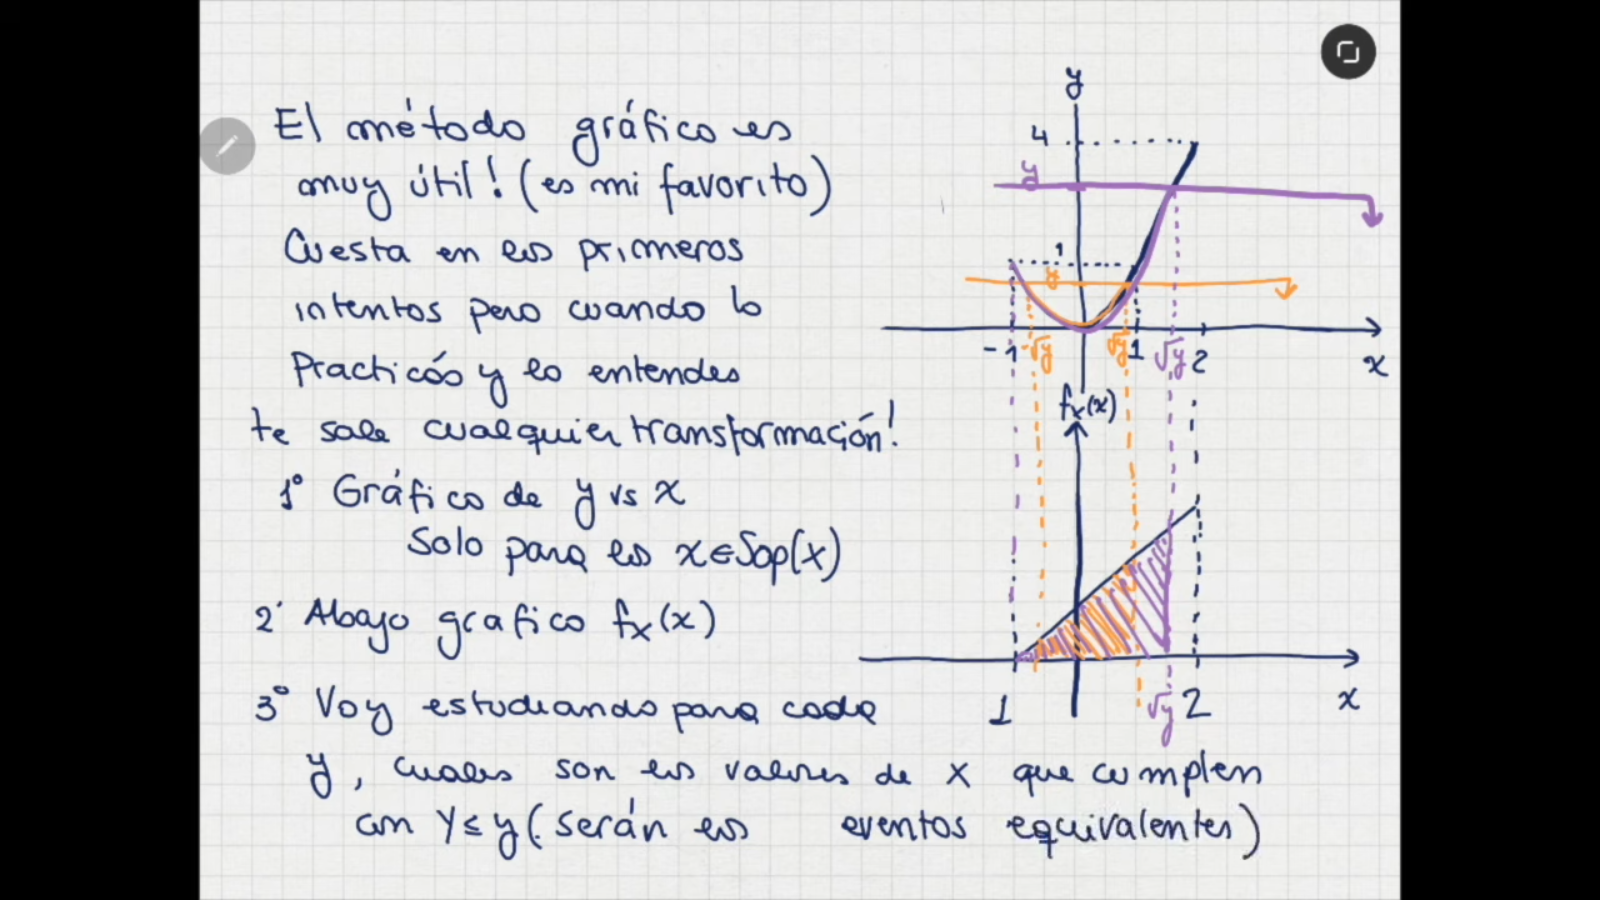 El método gráfico es
muy útil! (es mi favorito)
Cuesta en los primeros
intentos pero cuando lo
Practicás y lo entendes
te sale cualquier transformación!
1° Gráfico de y vs x
Solo para los x∈Sop(X)
2° Abajo grafico fx(x)
3° Voy estudiando para cada
y, cuales son los valores de x que cumplen
con Y≤y (serán los eventos equivalentes)
y
4
y
1
y
-1
-√y
√y
1
√y
2
x
fx(x)
1
√y
2
x